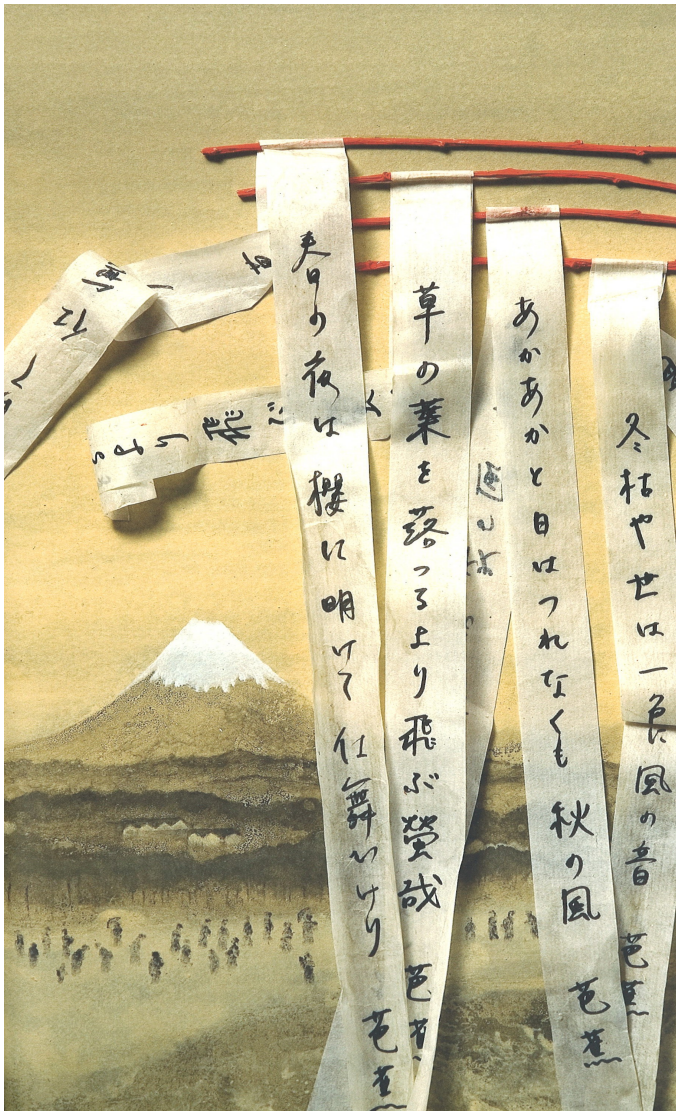 春の夜は櫻に明けて仕舞ひけり 芭蕉
草の葉を落つるより飛ぶ螢哉 芭蕉
あかあかと日はつれなくも秋の風 芭蕉
冬枯や世は一色に風の音 芭蕉